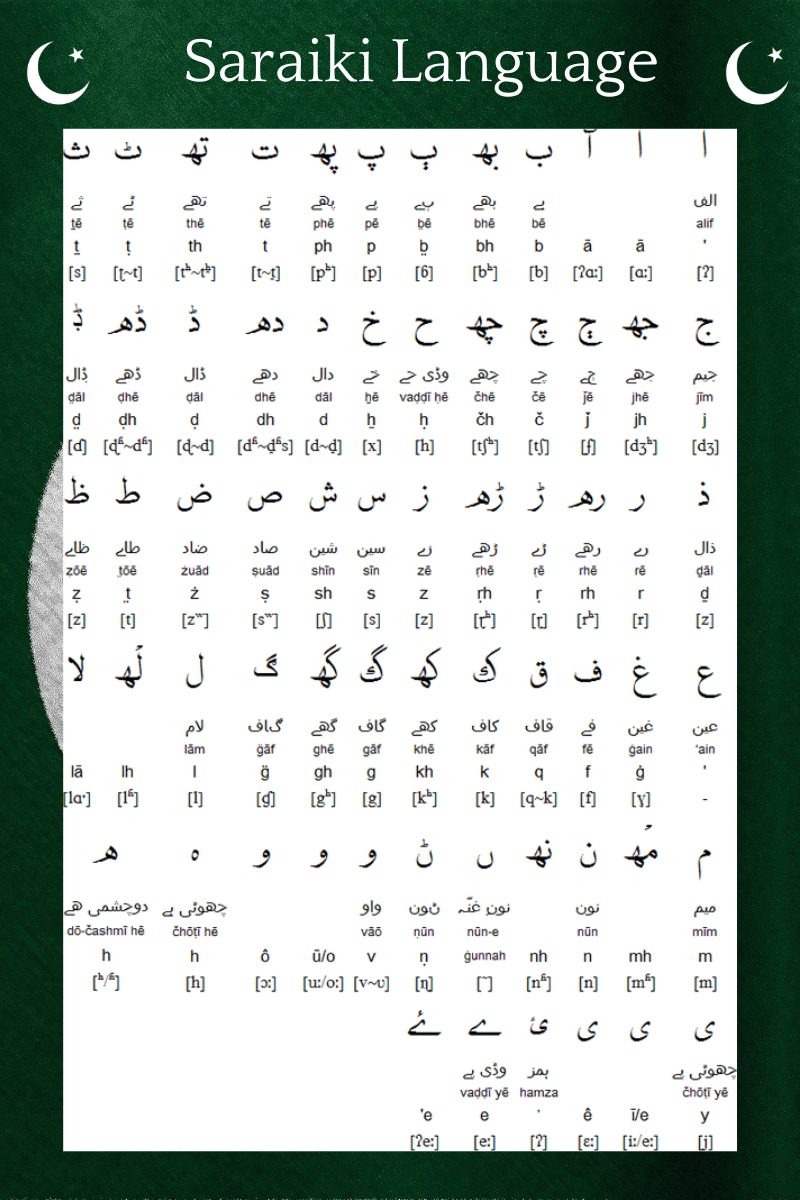 Saraiki Language
ا ا آ ب بھ ٻ پ پھ ت تھ ٹ ث
الف بے بھے ٻے پے پھے تے تھے ٹے ثے
ṯē ṭē thē tē phē pē b̤ē bhē bē alif
ṯ ṭ th t ph p b̤ bh b ā ā '
[s] [ʈ~t] [tʰ~t̪ʰ] [t~t̪] [pʰ] [p] [ɓ] [bʰ] [b] [ʔɑː] [ɑː] [ʔ]
ج جھ ڄ چ چھ ح خ د دھ ڈ ڈھ ݙ
جيم جھے ڄے چے چھے وڈی حے خے دال دھے ڈال ڈھے ݙال
d̤āl ḍhē ḍāl dhē dāl ẖē vaḍḍī ḥē čhē čē j̈ē jhē jīm
d̤ ḍh ḍ dh d ẖ ḥ čh č j̈ jh j
[ɗ] [ɖʱ~dʱ] [ɖ~d] [dʱ~d̪ʱs] [d~d̪] [x] [h] [tʃʰ] [tʃ] [ʄ] [dʒʰ] [dʒ]
ذ ر رھ ڑ ڑھ ز س ش ص ض ط ظ
ذال رے رھے ڑے ڑھے زے سين شين صاد ضاد طاے ظاے
ẓōē t̤ōē żuād ṣuād shīn sīn zē ṛhē ṛē rhē rē ḏāl
ẓ t̤ ż ṣ sh s z ṛh ṛ rh r ḏ
[z] [t] [z‟] [s‟] [ʃ] [s] [z] [ɽʰ] [ɽ] [rʰ] [r] [z]
ع غ ف ق ك کھ گ گھ ڳ ل لھ لا
عين غين فے قاف کاف کھے گاف گھے ڳاف لام
lām g̈āf ghē gāf khē kāf qāf fē ġain 'ain
lā lh l g̈ gh g kh k q f ġ '
[lɑ·] [lʱ] [l] [ɠ] [gʰ] [g] [kʰ] [k] [q~k] [f] [ɣ] -
م مھ ن نھ ں ݨ و و و ہ ھ
ميم نون نونِ غنّہ ݨون واو چھوٹی ہے دوچشمی ھے
dō-čashmī hē čhōṭī hē vāō ṇūn nūn-e nūn mīm
h h ô ū/o v ṇ ġunnah nh n mh m
[ʰ/ʱ] [h] [ɔː] [uː/oː] [v~ʋ] [ɳ] [˜] [nʱ] [n] [mʱ] [m]
ی ی ی ئ ے ۓ
چھوٹی یے ہمز وڈی یے
vaḍḍī yē hamza čhōṭī yē
'e e ' ê ī/e y
[ʔeː] [eː] [ʔ] [ɛː] [iː/eː] [j]